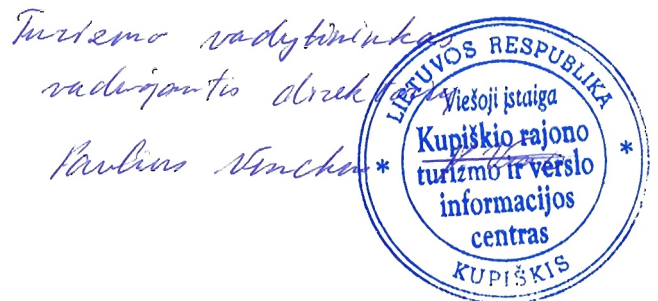 Turizmo vadybininkas
vaduojantis direktorių
Paulius Venckus
LIETUVOS RESPUBLIKA
Viešoji įstaiga
Kupiškio rajono
turizmo ir verslo
informacijos
centras
* KUPIŠKIS *